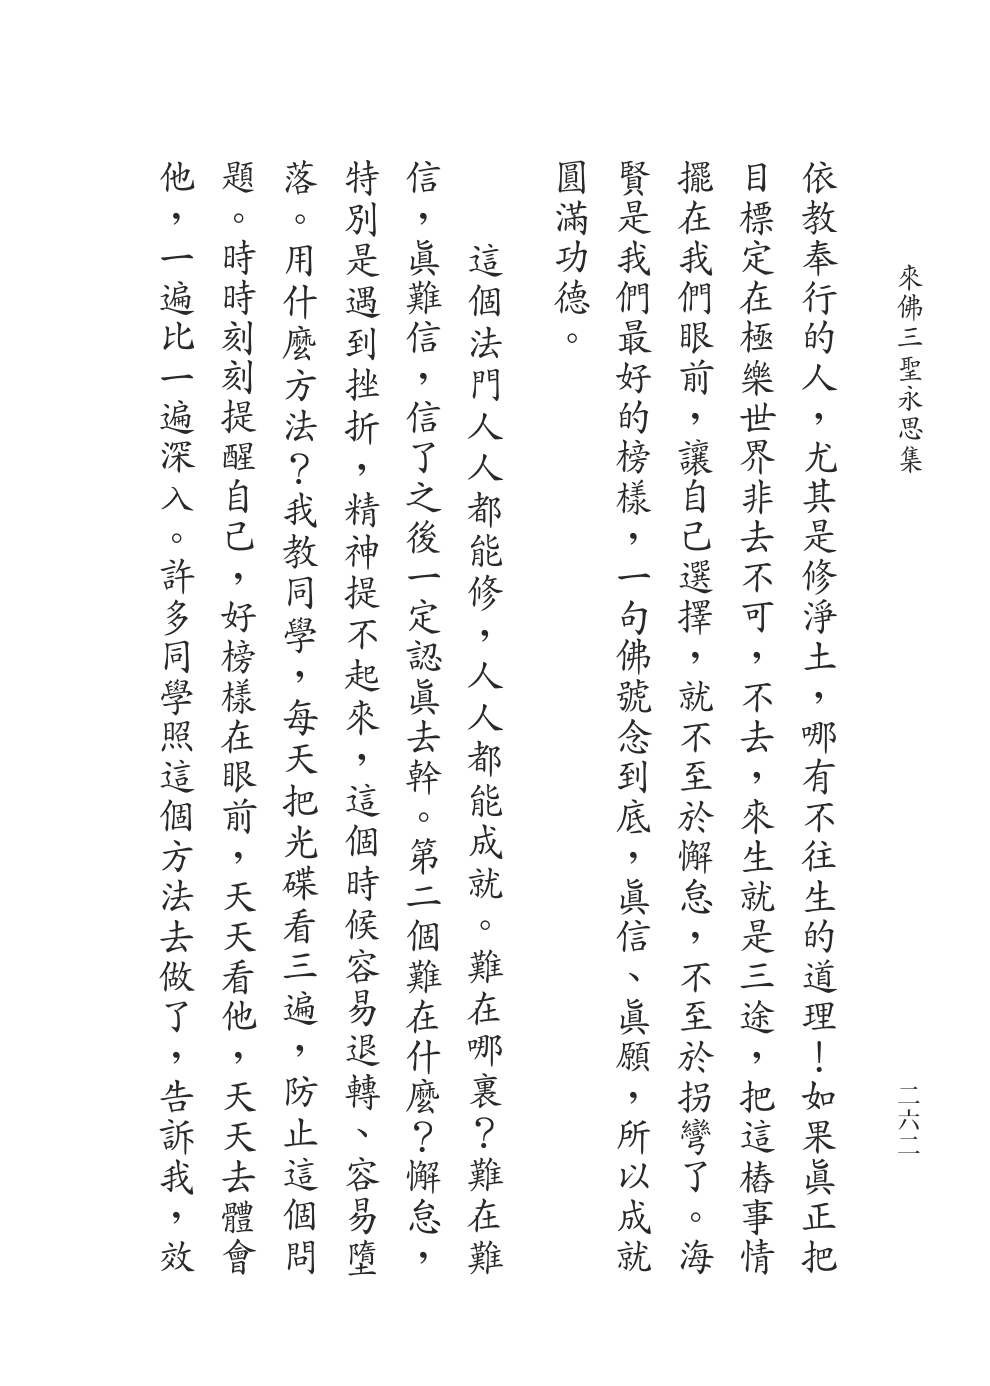 來佛三聖永思集
二六二
依教奉行的人，尤其是修淨土，哪有不往生的道理！如果眞正把
目標定在極樂世界非去不可，不去，來生就是三途，把這樁事情
擺在我們眼前，讓自己選擇，就不至於懈怠，不至於拐彎了。海
賢是我們最好的榜樣，一句佛號念到底，眞信、眞願，所以成就
圓滿功德。
這個法門人人都能修，人人都能成就。難在哪裏？難在難
信，眞難信，信了之後一定認眞去幹。第二個難在什麼？懈怠，
特別是遇到挫折，精神提不起來，這個時候容易退轉、容易墮
落。用什麼方法？我教同學，每天把光碟看三遍，防止這個問
題。時時刻刻提醒自己，好榜樣在眼前，天天看他，天天去體會
他，一遍比一遍深入。許多同學照這個方法去做了，告訴我，效